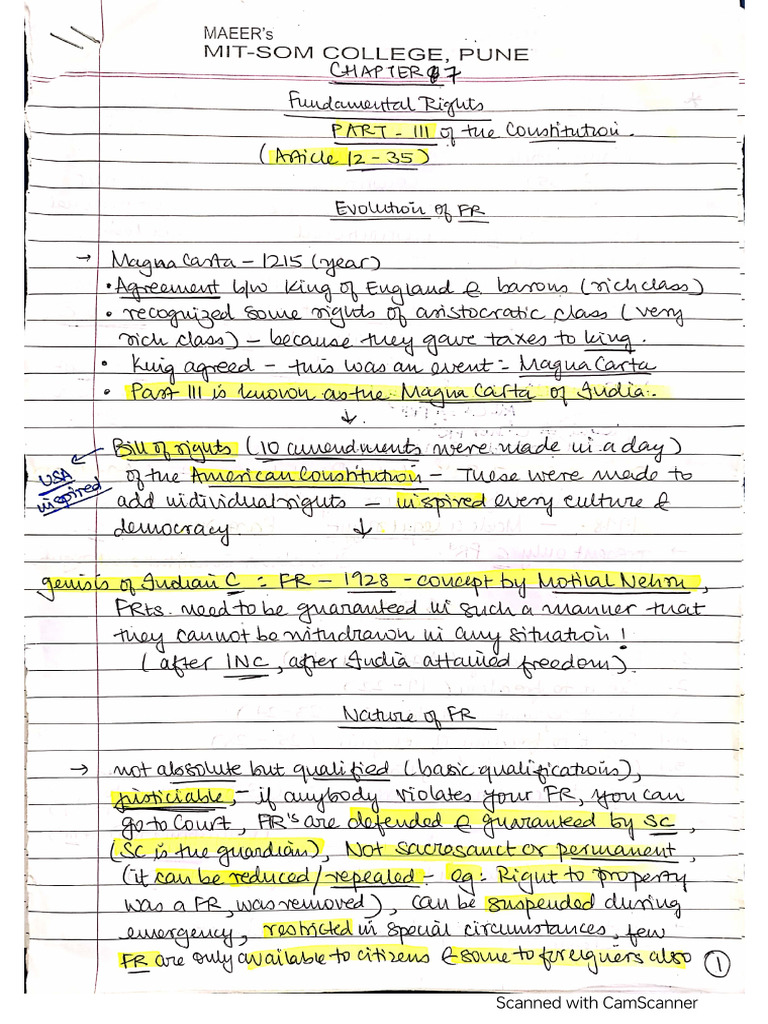 MAEER's
MIT-SOM COLLEGE, PUNE
CHAPTER 7
Fundamental Rights
PART - III of the Constitution.
(Article 12 - 35)
Evolution of FR
→ Magna Carta - 1215 (year)
• Agreement b/w King of England & barons (rich class)
• recognized some rights of aristocratic class (very
rich class) - because they gave taxes to king.
• King agreed - this was an event :- Magna Carta
• Part III is known as the Magna Carta of India.
↓
Bill of rights (10 amendments were made in a day)
USA
inspired
of the American Constitution - These were made to
add individual rights - inspired every culture &
democracy. ↓
genisis of Indian C = FR - 1928 - concept by Motilal Nehru,
FRts. need to be guaranteed in such a manner that
they cannot be withdrawn in any situation!
(after INC, after India attained freedom).
Nature of FR
→ not absolute but qualified (basic qualifications),
justiciable, - if anybody violates your FR, you can
go to Court, FR's are defended & guaranteed by SC,
(SC is the guardian), Not sacrosanct or permanent,
(it can be reduced/repealed - eg: Right to property
was a FR, was removed), can be suspended during
emergency, restricted in special circumstances, few
FR are only available to citizens & some to foreigners also
1
Scanned with CamScanner